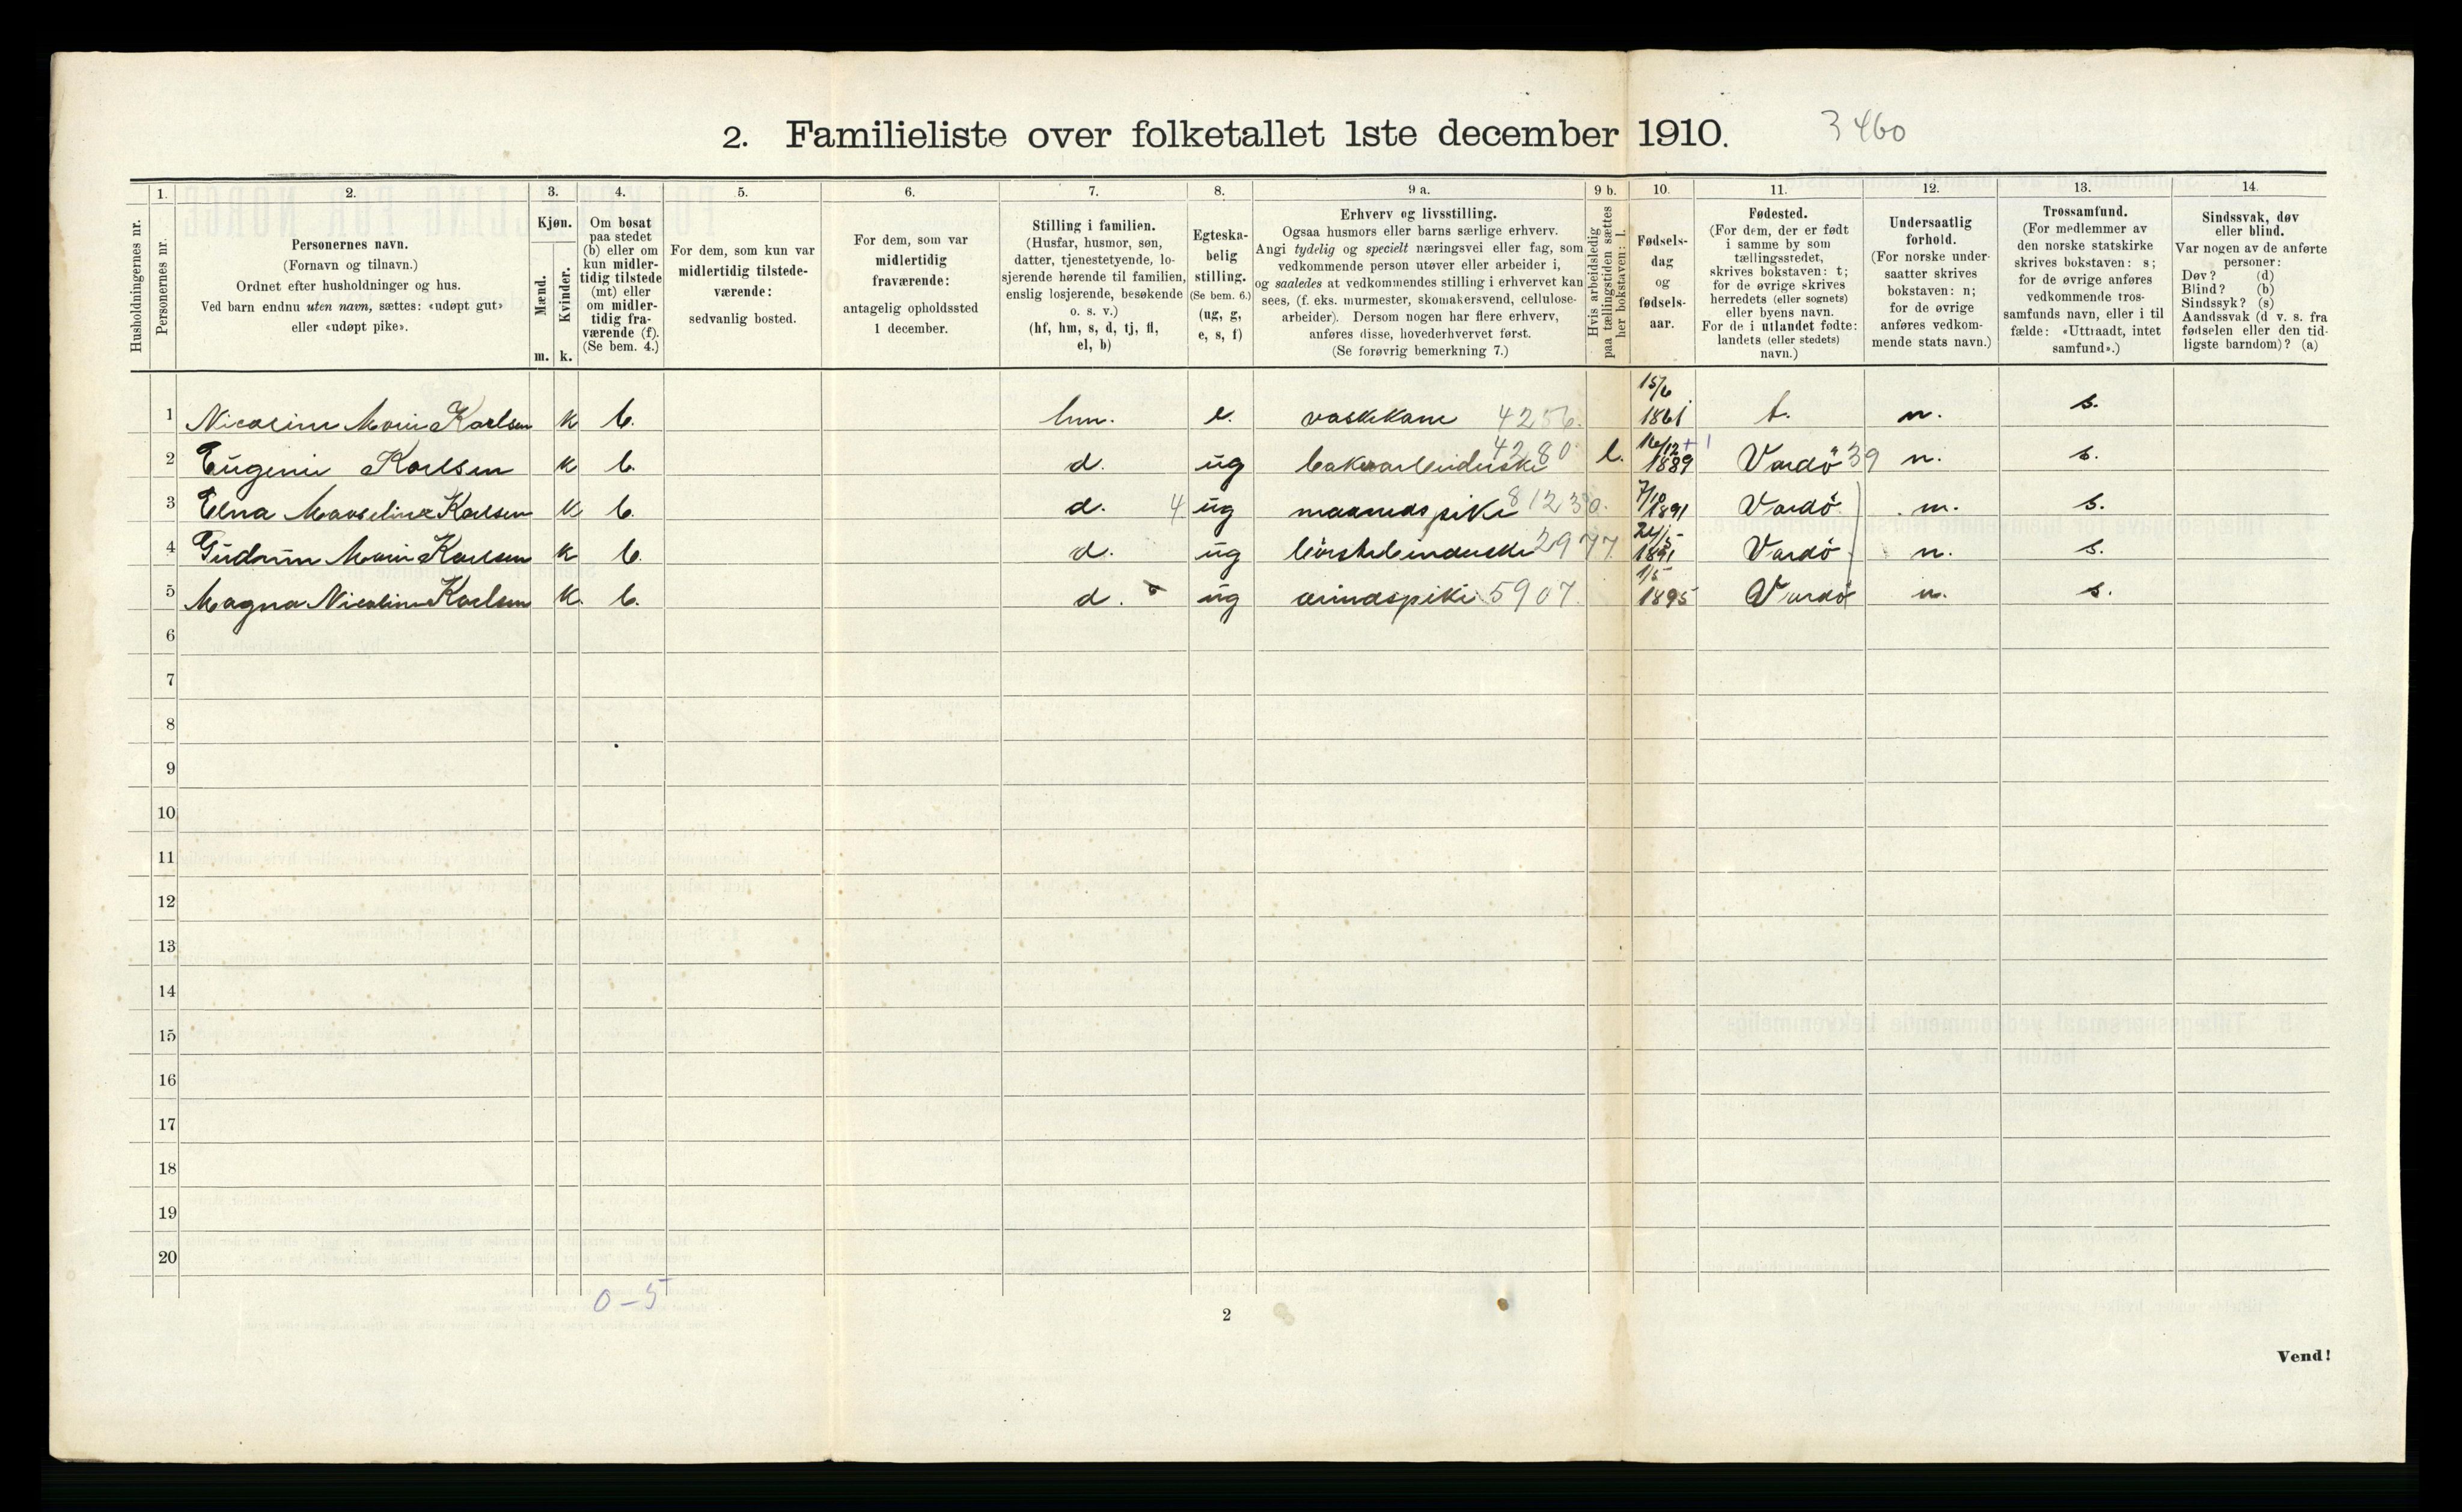 2. Familieliste over folketallet 1ste december 1910.
3460
Husholdningernes nr.
1.
Personernes nr.
2.
Personernes navn.
(Fornavn og tilnavn.)
Ordnet efter husholdninger og hus.
Ved barn endnu uten navn, sættes: «udøpt gut»
eller «udøpt pike».
3.
Kjøn.
Mænd.
Kvinder.
m. k.
4.
Om bosat
paa stedet
(b) eller om
kun midler-
tidig tilstede
(mt) eller
om midler-
tidig fra-
værende (f).
(Se bem. 4.)
5.
For dem, som kun var
midlertidig tilstede-
værende:
sedvanlig bosted.
6.
For dem, som var
midlertidig
fraværende:
antagelig opholdssted
1 december.
7.
Stilling i familien.
(Husfar, husmor, søn,
datter, tjenestetyende, lo-
sjerende hørende til familien,
enslig losjerende, besøkende
o. s. v.)
(hf, hm, s, d, tj, fl,
el, b)
8.
Egteska-
belig
stilling.
(Se bem. 6.)
(ug, g,
e, s, f)
9 a.
Erhverv og livsstilling.
Ogsaa husmors eller barns særlige erhverv.
Angi tydelig og specielt næringsvei eller fag, som
vedkommende person utøver eller arbeider i,
og saaledes at vedkommendes stilling i erhvervet kan
sees, (f. eks. murmester, skomakersvend, cellulose-
arbeider). Dersom nogen har flere erhverv,
anføres disse, hovederhvervet først.
(Se forøvrig bemerkning 7.)
9 b.
Hvis arbeidsledig
paa tællingstiden sættes
her bokstaven: l.
10.
Fødsels-
dag
og
fødsels-
aar.
11.
Fødested.
(For dem, der er født
i samme by som
tællingsstedet,
skrives bokstaven: t;
for de øvrige skrives
herredets (eller sognets)
eller byens navn.
For de i utlandet fødte:
landets (eller stedets)
navn.)
12.
Undersaatlig
forhold.
(For norske under-
saatter skrives
bokstaven: n;
for de øvrige
anføres vedkom-
mende stats navn.)
13.
Trossamfund.
(For medlemmer av
den norske statskirke
skrives bokstaven: s;
for de øvrige anføres
vedkommende tros-
samfunds navn, eller i til
fælde: «Uttraadt, intet
samfund».)
14.
Sindssvak, døv
eller blind.
Var nogen av de anførte
personer:
Døv? (d)
Blind? (b)
Sindssyk? (s)
Aandssvak (d v. s. fra
fødselen eller den tid-
ligste barndom)? (a)
1 Nicoline Marie Karlsen k b. hm. e. vaskekone 4256. 15/6 1861 t. n. s.
2 Eugenie Karlsen k b. d. ug 4280 l. 16/12 1889 Vardö 39 n. s.
3 Elna Karlsen k b. d. 4 ug maanedspike 81230. 7/10 1891 Vardö n. s.
4 Gudrun Marie Karlsen k b. d. ug 2977. 1891 Vardö n. s.
5 Magna Nicoline Karlsen k. b. d. ug ærindspike 5907. 1/5 1895 Vardö n. s.
6
7
8
9
10
11
12
13
14
15
16
17
18
19
20
0-5
2
Vend!